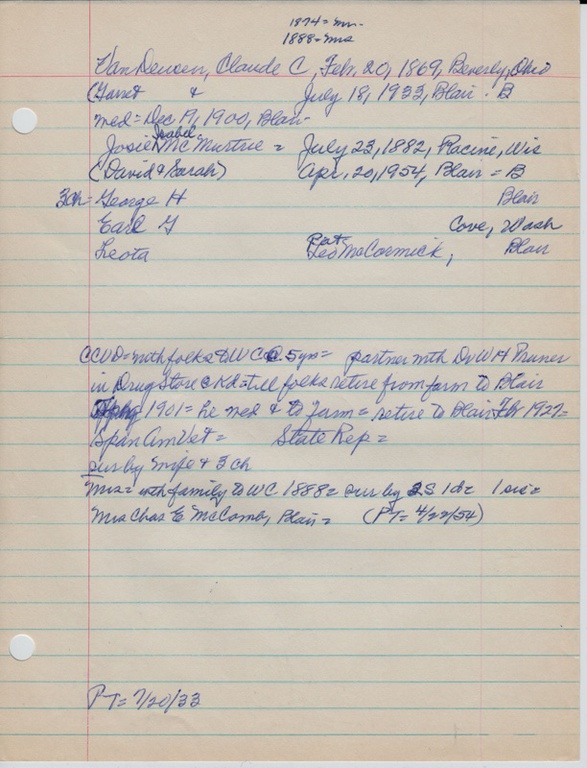 1874 = mr.
1888 = mrs
Van Deusen, Claude C, Feb. 20, 1869, Beverly, Ohio
(Garret & July 18, 1933, Blair - B
med = Dec 19, 1900, Blair
Josie Isabel McMurtrie = July 23, 1882, Racine, Wis
(David & Sarah) Apr. 20, 1954, Blair = B
3ch = George H Blair
Earl G Cove, Wash
Leota Pat Leo McCormick, Blair
CCVD = with folks to WC @ 5yrs = partner with Dr W H Pruner
in Drug Store @ Kd = till folks retire from farm to Blair
1901 = he med & to farm = retire to Blair Feb 1927 =
Span Am Vet = State Rep =
sur by wife & 3 ch
Mrs = with family to WC 1888 = sur by 2S 1d = 1 sis =
Mrs Chas E McComb, Blair = (PT = 4/22/54)
PT = 7/20/33